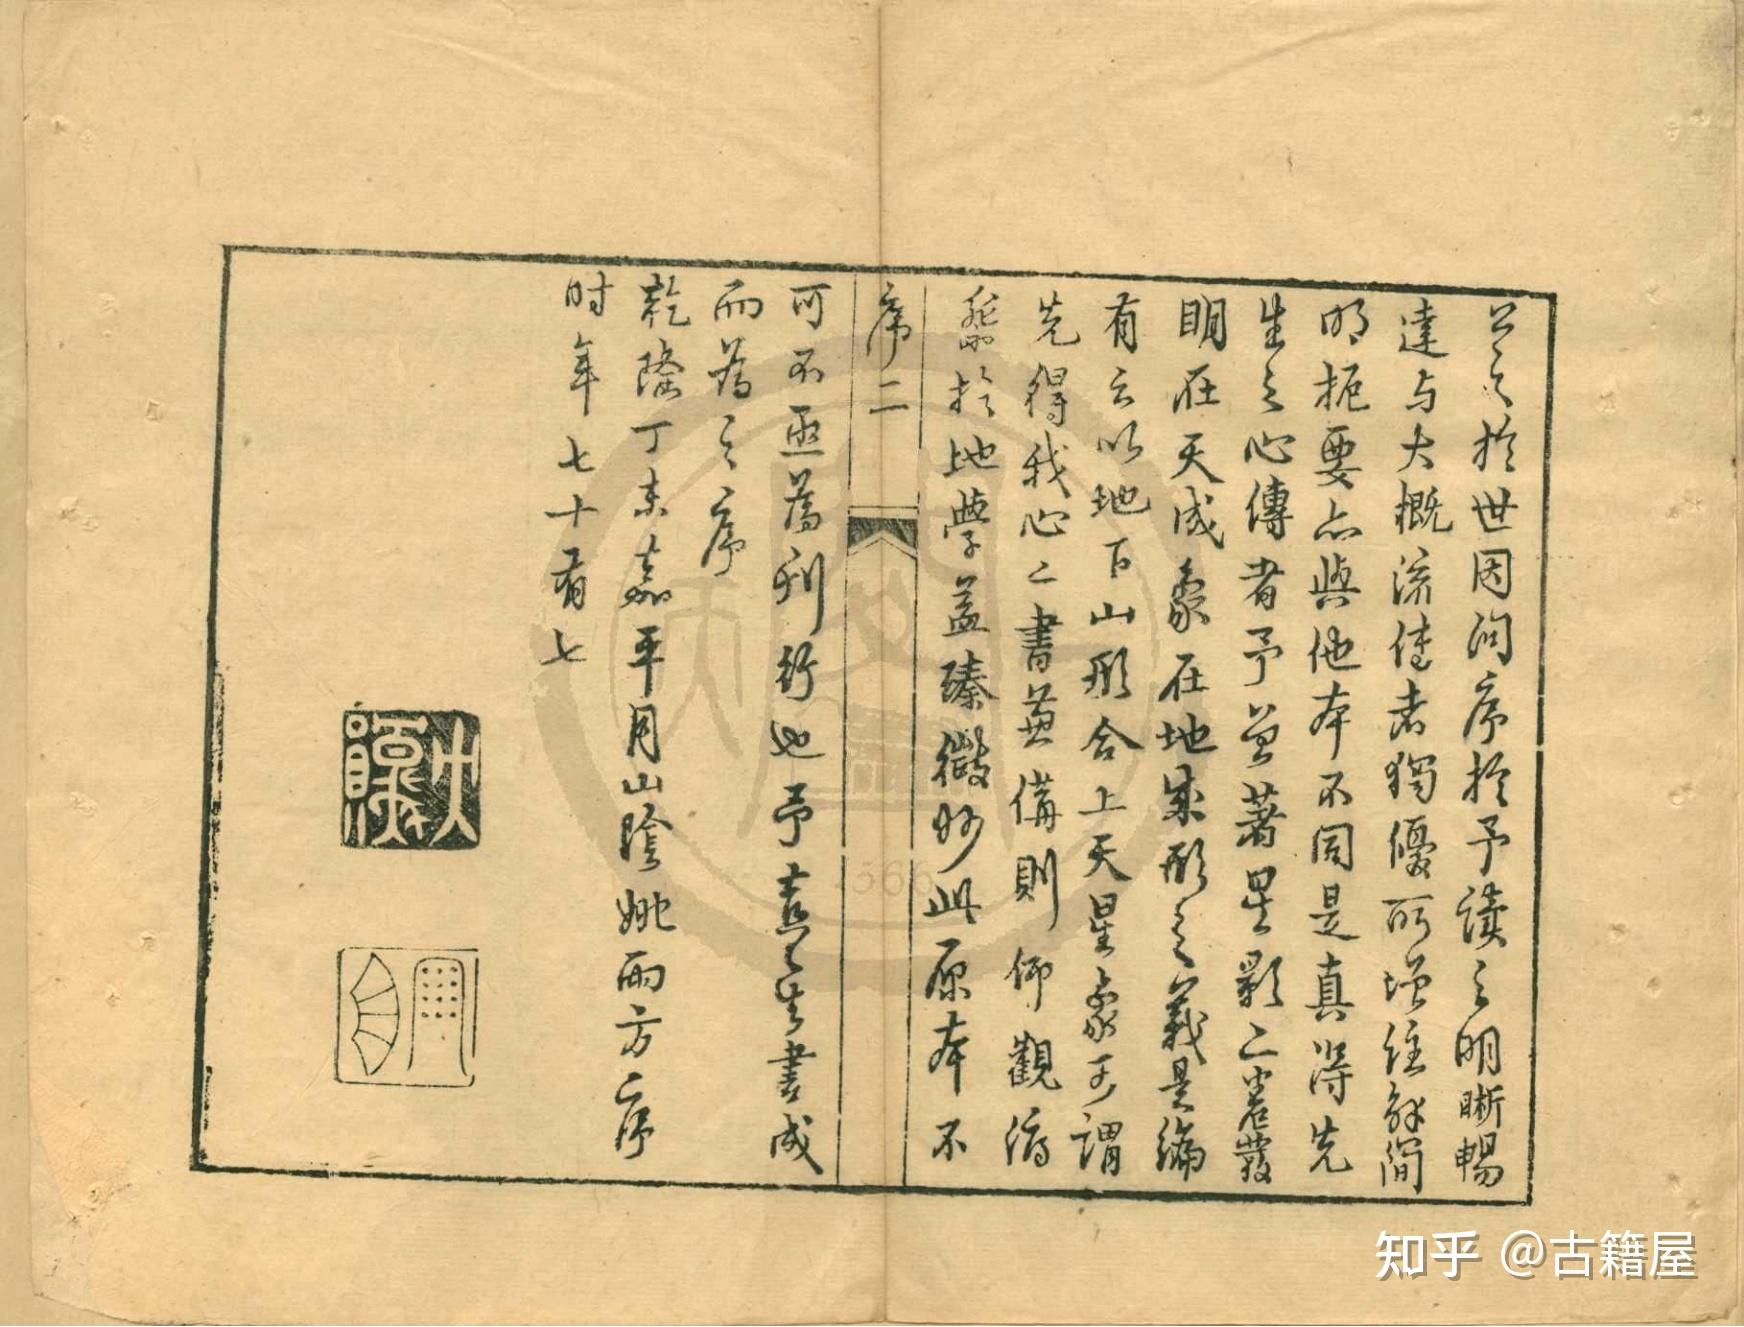 公之於世因问序於予读之明晰暢
達与大概流传者獨優所增注解簡
明扼要亦與他本不同是真得先
生之心傳者予曾著星影二卷發
明在天成象在地成形之義是编
有云以地下山形合上天星象可謂
先得我心二書兼備則仰觀俯
察於地學益臻微妙此原本不
序二
可不亟為刊行也予喜其书成
而為之序
乾隆丁未嘉平月山陰姚雨方序
时年七十有七